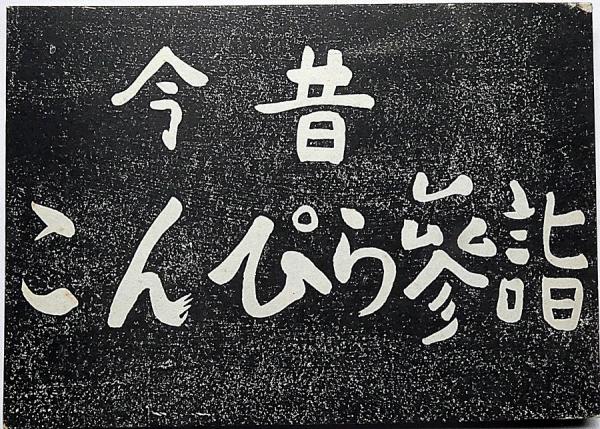 今昔
こんぴら參詣